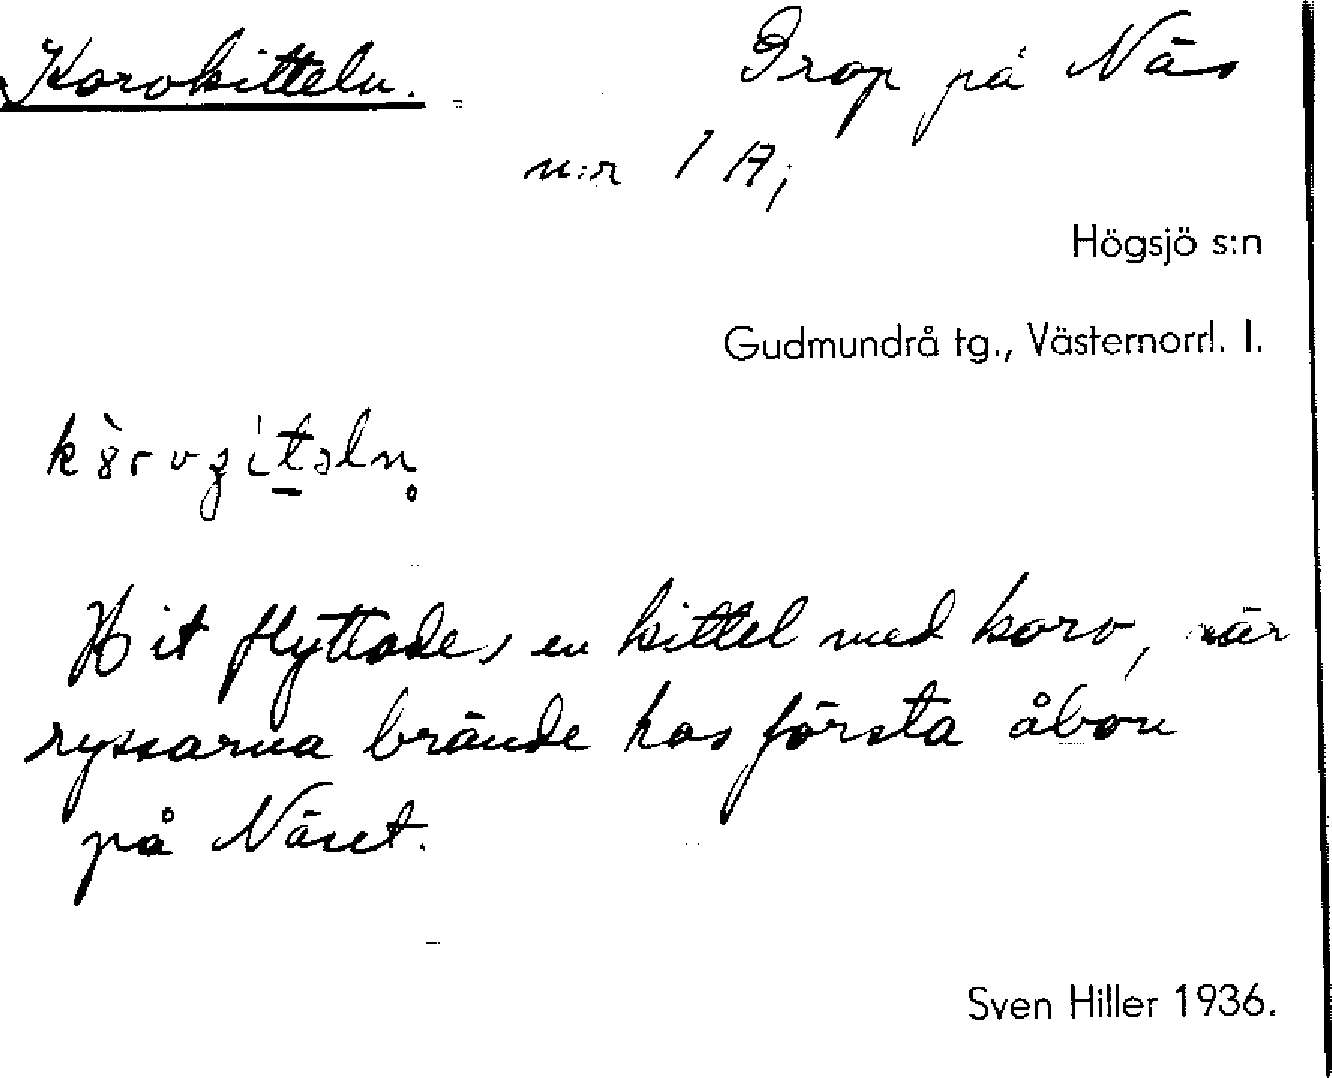 Korvkitteln. Grop på Näs
n:r 1 A;
Högsjö s:n
Gudmundrå tg., Västernorrl. l.
Hit flyttades en kittel med korv, när
ryssarna brände hos första åbon
på Näset.
Sven Hiller 1936.